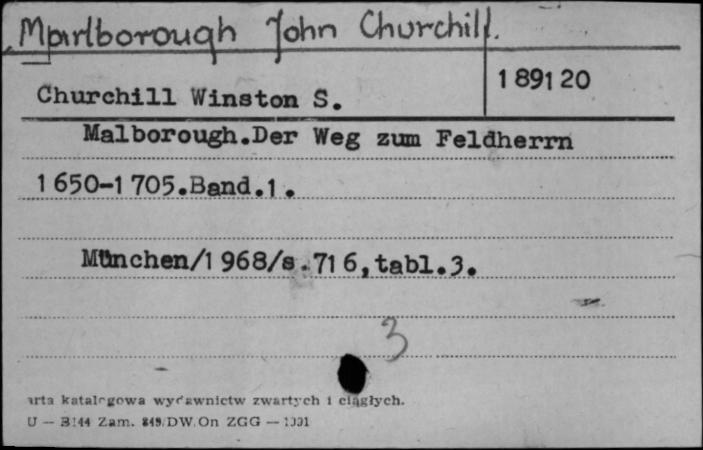 Marlborough John Churchill.
Churchill Winston S.
189120
Malborough.Der Weg zum Feldherrn
1650-1705.Band.1.
München/1968/s.716,tabl.3.
3
arta katalogowa wydawnictw zwartych i ciągłych.
U — B144 Zam. 849/DW.On ZGG —